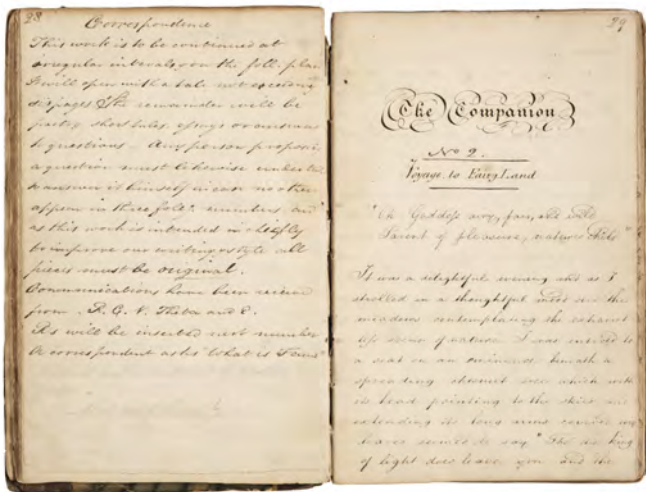 28
Correspondence
This work is to be continued at
irregular intervals on the foll. plan
It will open with a tale not exceeding
six pages & the remainder will be
partly short tales, essays or answers
to questions - Any person proposing
a question must likewise undertake
to answer it himself in case no other
appear in three foll. numbers, and
as this work is intended chiefly
to improve our writing & style all
pieces must be original.
Communications have been received
from R. G. V. Theta and C.
Rs will be inserted next number
A correspondent asks "What is Fame"
29
The Companion
No 2.
Voyage to Fairy Land
"Oh Goddess airy, fair, and wild
Parent of pleasure, natures child"
It was a delightful evening and as I
strolled in a thoughtful mood over the
meadows contemplating the exhaust
less stores of nature I was invited to
a seat on an eminence beneath a
spreading chesnut tree which with
its head pointing to the skies and
extending its long arms covered w
leaves seemed to say "The day king
of light does leave you and the